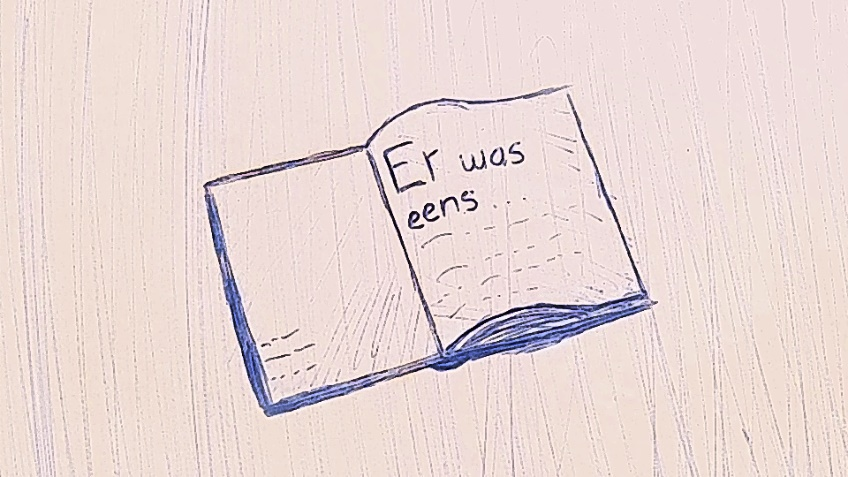 Er was
eens...